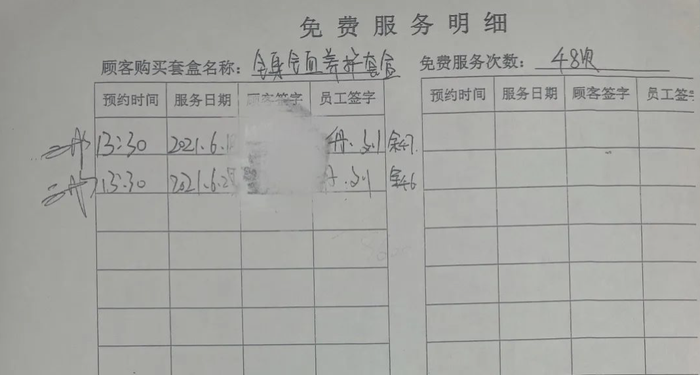 免费服务明细
顾客购买套盒名称：全身全面养护套盒 免费服务次数：48次
预约时间 服务日期 顾客签字 员工签字 预约时间 服务日期 顾客签字 员工签
13:30 2021.6.1 余47.
13:30 2021.6.2 余46